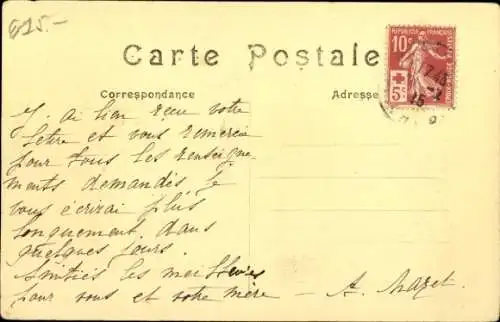 625.-
Carte Postale
RÉPUBLIQUE FRANÇAISE
10c
5c
POSTES
15
Correspondance
Adresse
J. ai bien reçu votre
lettre et vous remercie
pour tous les renseigne-
ments demandés. je
vous écrirai plus
longuement. dans
quelques jours.
Amitiés les meilleures
pour vous et votre mère — A. Mazet.